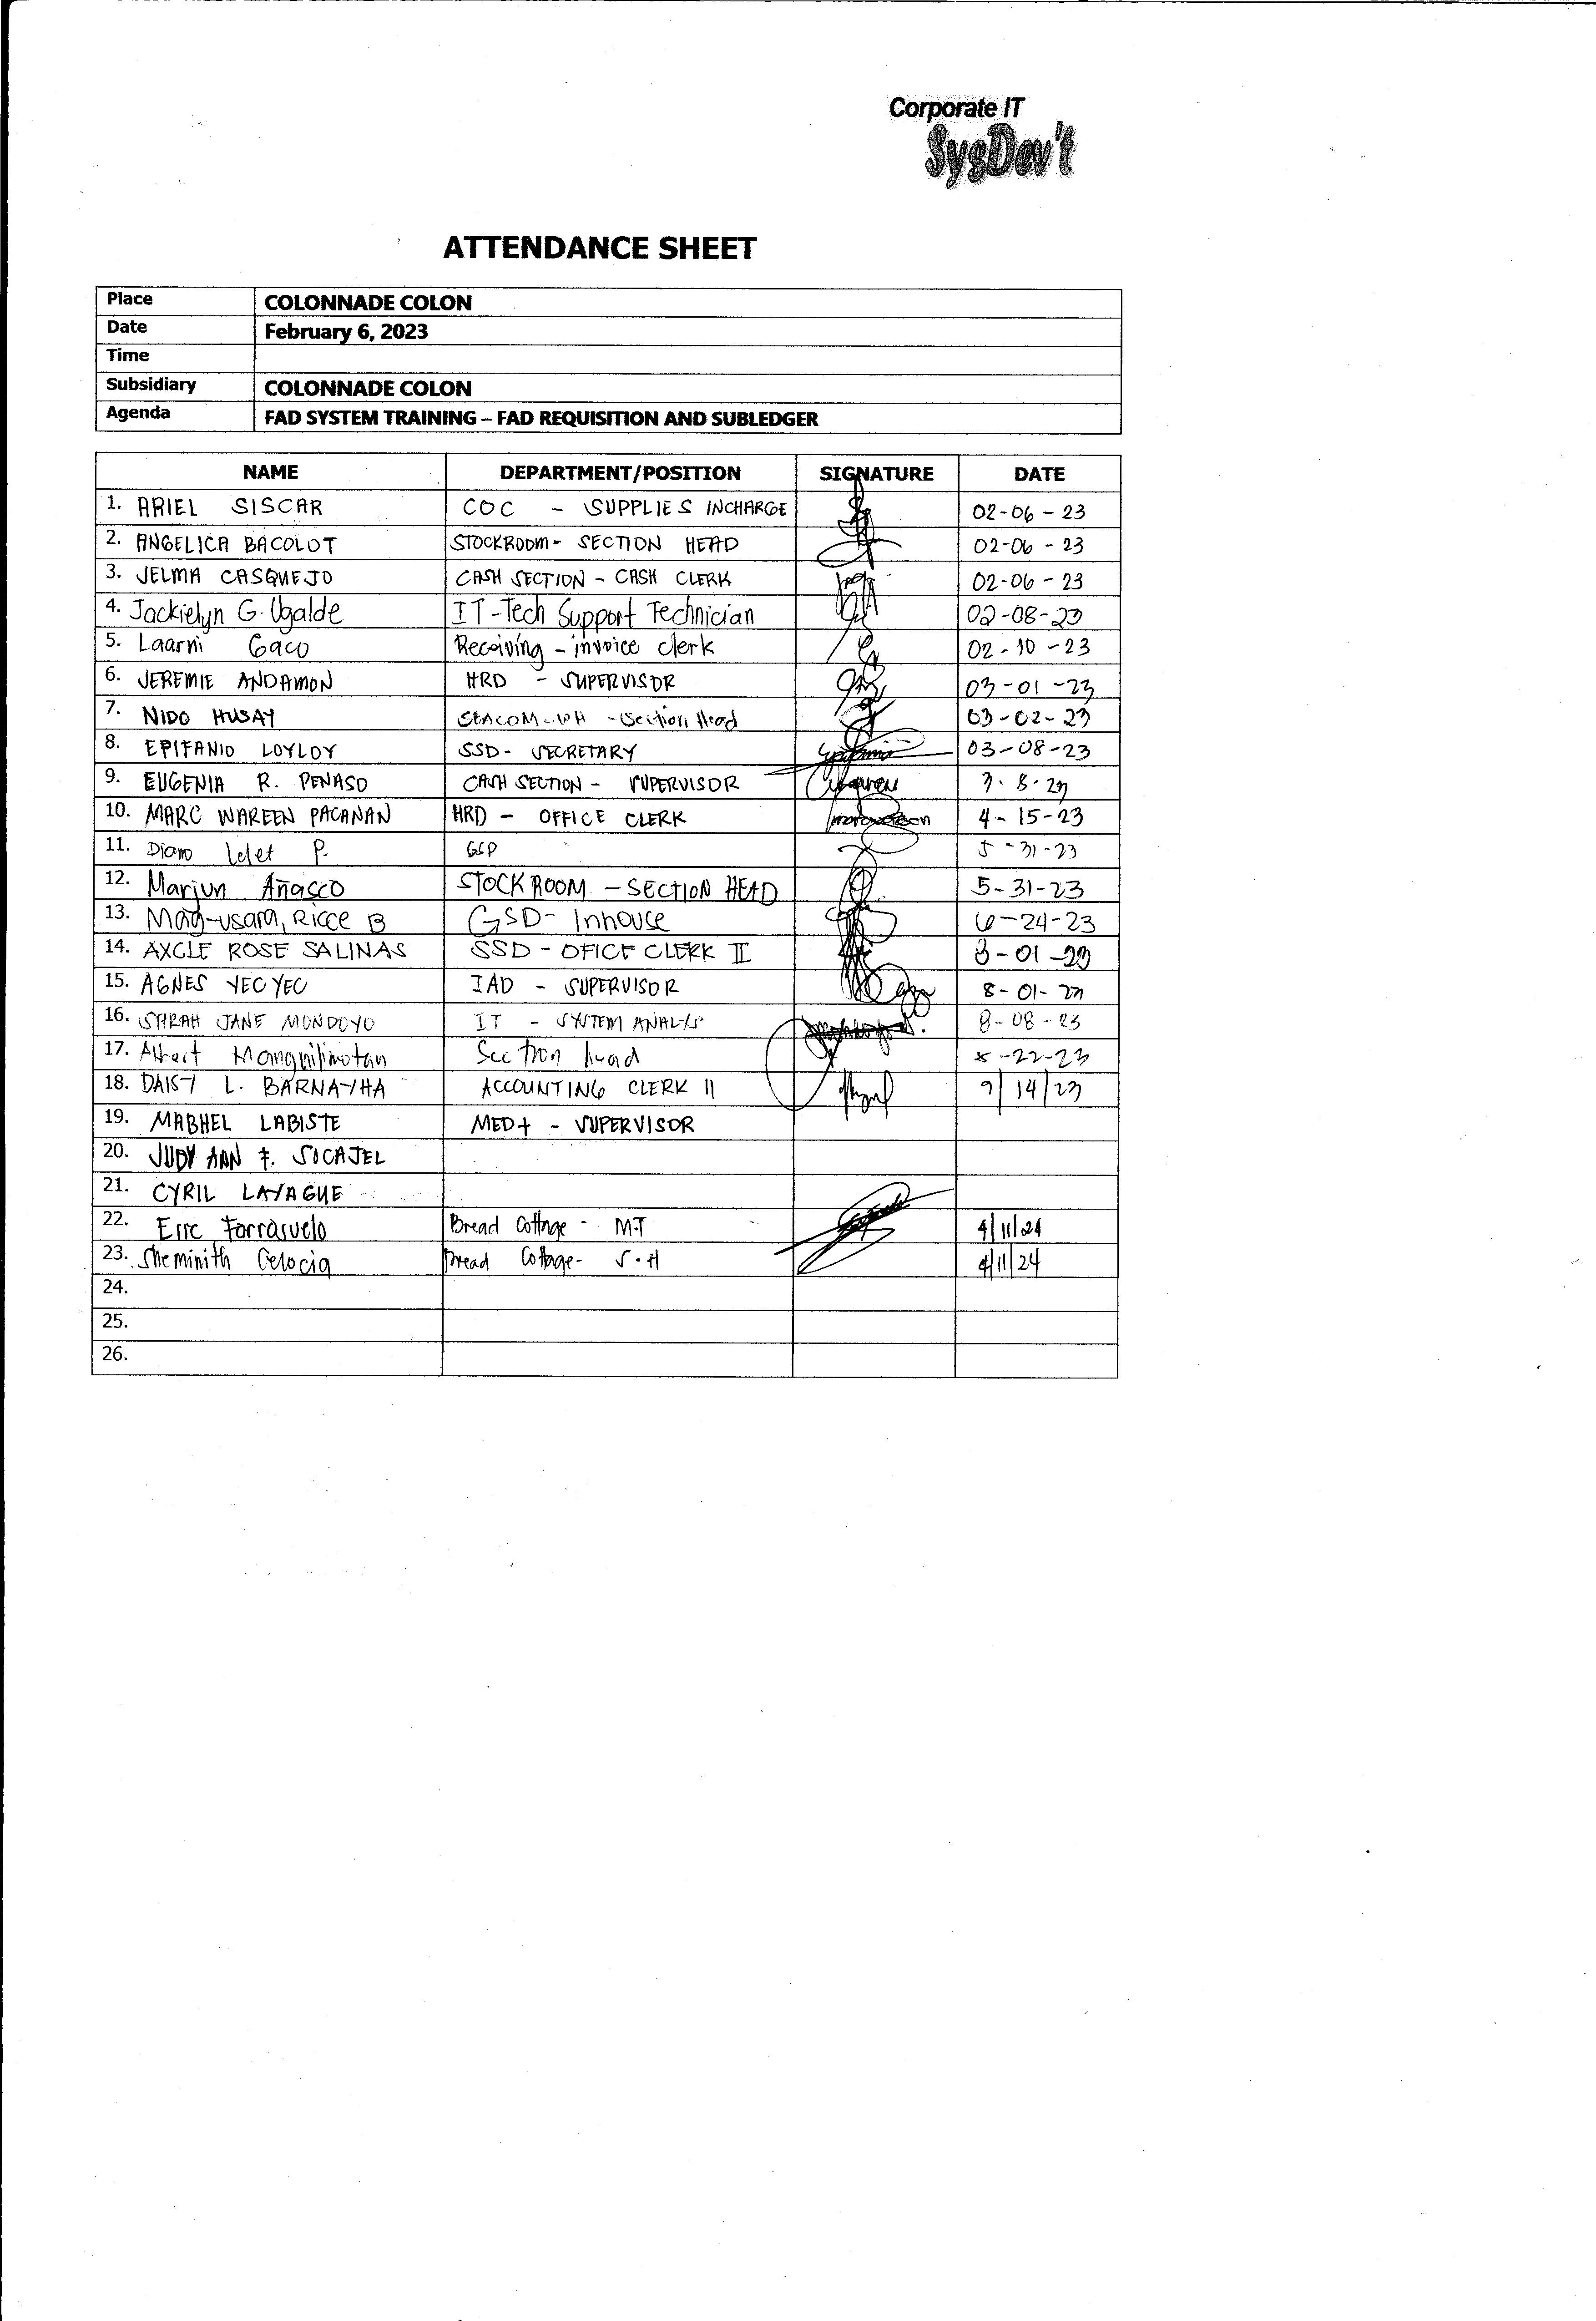 Corporate IT
SysDev't
ATTENDANCE SHEET
Place COLONNADE COLON
Date February 6, 2023
Time
Subsidiary COLONNADE COLON
Agenda FAD SYSTEM TRAINING – FAD REQUISITION AND SUBLEDGER
NAME DEPARTMENT/POSITION SIGNATURE DATE
1. ARIEL SISCAR COC - SUPPLIES INCHARGE 02-06-23
2. ANGELICA BACOLOT STOCKROOM - SECTION HEAD 02-06-23
3. JELMA CASQUEJO CASH SECTION - CASH CLERK 02-06-23
4. Jackielyn G. Ugalde IT-Tech Support Technician 02-08-23
5. Laarni Gaco Receiving - invoice clerk 02-10-23
6. JEREMIE ANDAMON HRD - SUPERVISOR 03-01-23
7. NIDO HUSAY - Section Head 03-02-23
8. EPIFANIO LOYLOY SSD - SECRETARY 03-08-23
9. EUGENIA R. PENASO CASH SECTION - SUPERVISOR 3-8-23
10. MARC WAREEN PACANAN HRD - OFFICE CLERK 4-15-23
11. Lelet P. 5-31-23
12. Marjun Añasco STOCKROOM - SECTION HEAD 5-31-23
13. Mag-usara, Ricce B GSD- Inhouse 6-24-23
14. AXCLE ROSE SALINAS SSD - OFICE CLERK II 8-01-23
15. AGNES YECYEC IAD - SUPERVISOR 8-01-23
16. SARAH JANE MONDOYO IT - SYSTEM ANALYS 8-08-23
17. Albert Manguilimotan Section head 8-22-23
18. DAISY L. BARNAYHA ACCOUNTING CLERK II 9/14/23
19. MABHEL LABISTE MED+ - SUPERVISOR
20. JUDY ANN F. SOCAJEL
21. CYRIL LAYAGUE
22. Eric Farrasuelo Bread Cottage - M.T 4/11/24
23. Sheminith Celocia Bread Cottage- S.H 4/11/24
24.
25.
26.